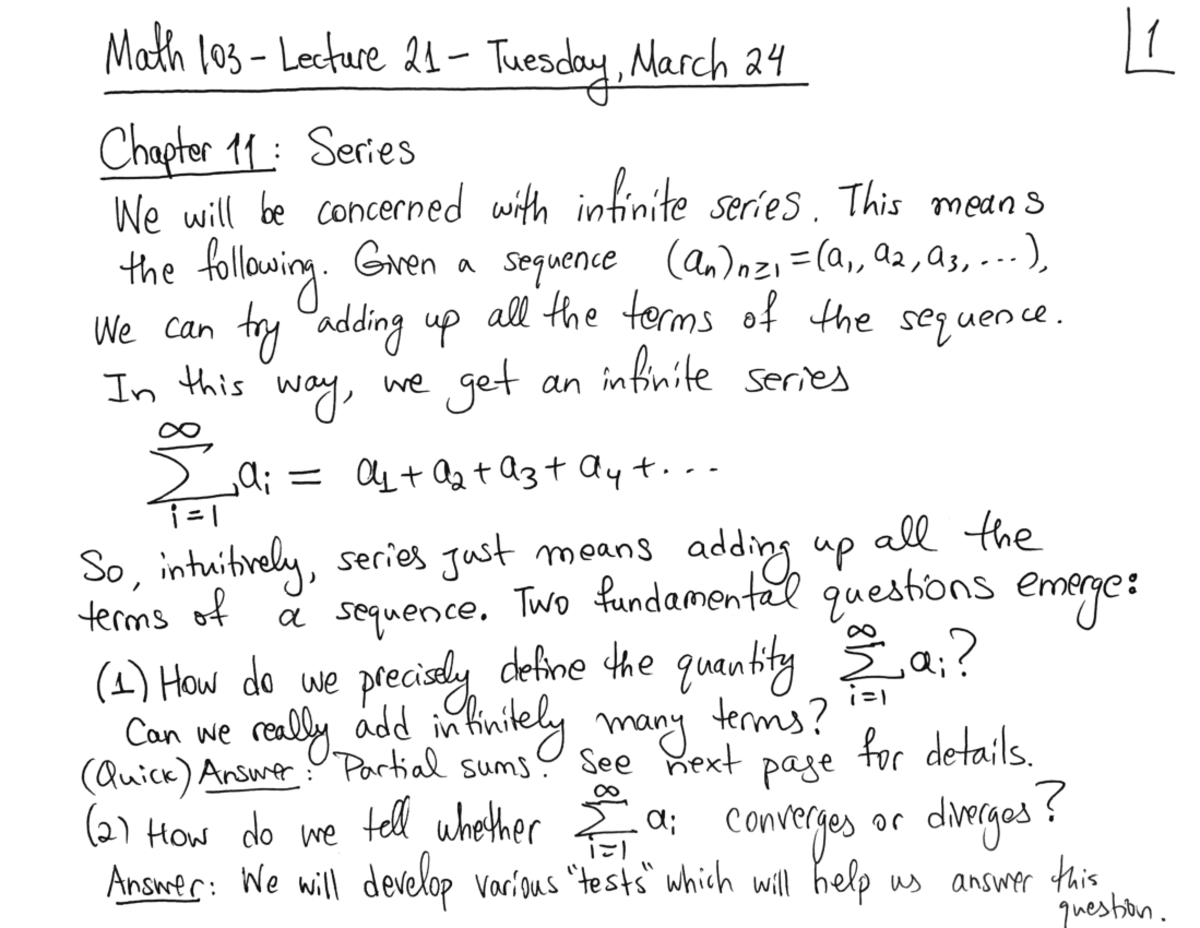 Math 103 - Lecture 21 - Tuesday, March 24
1
Chapter 11: Series
We will be concerned with infinite series. This means
the following. Given a sequence (aₙ)ₙ≥₁ = (a₁, a₂, a₃, ...),
We can try adding up all the terms of the sequence.
In this way, we get an infinite series
∞
∑ aᵢ = a₁ + a₂ + a₃ + a₄ + ...
i=1
So, intuitively, series just means adding up all the
terms of a sequence. Two fundamental questions emerge:
(1) How do we precisely define the quantity ∑_{i=1}^{∞} aᵢ?
Can we really add infinitely many terms?
(Quick) Answer: "Partial sums". See next page for details.
(2) How do we tell whether ∑_{i=1}^{∞} aᵢ converges or diverges?
Answer: We will develop various "tests" which will help us answer this
question.